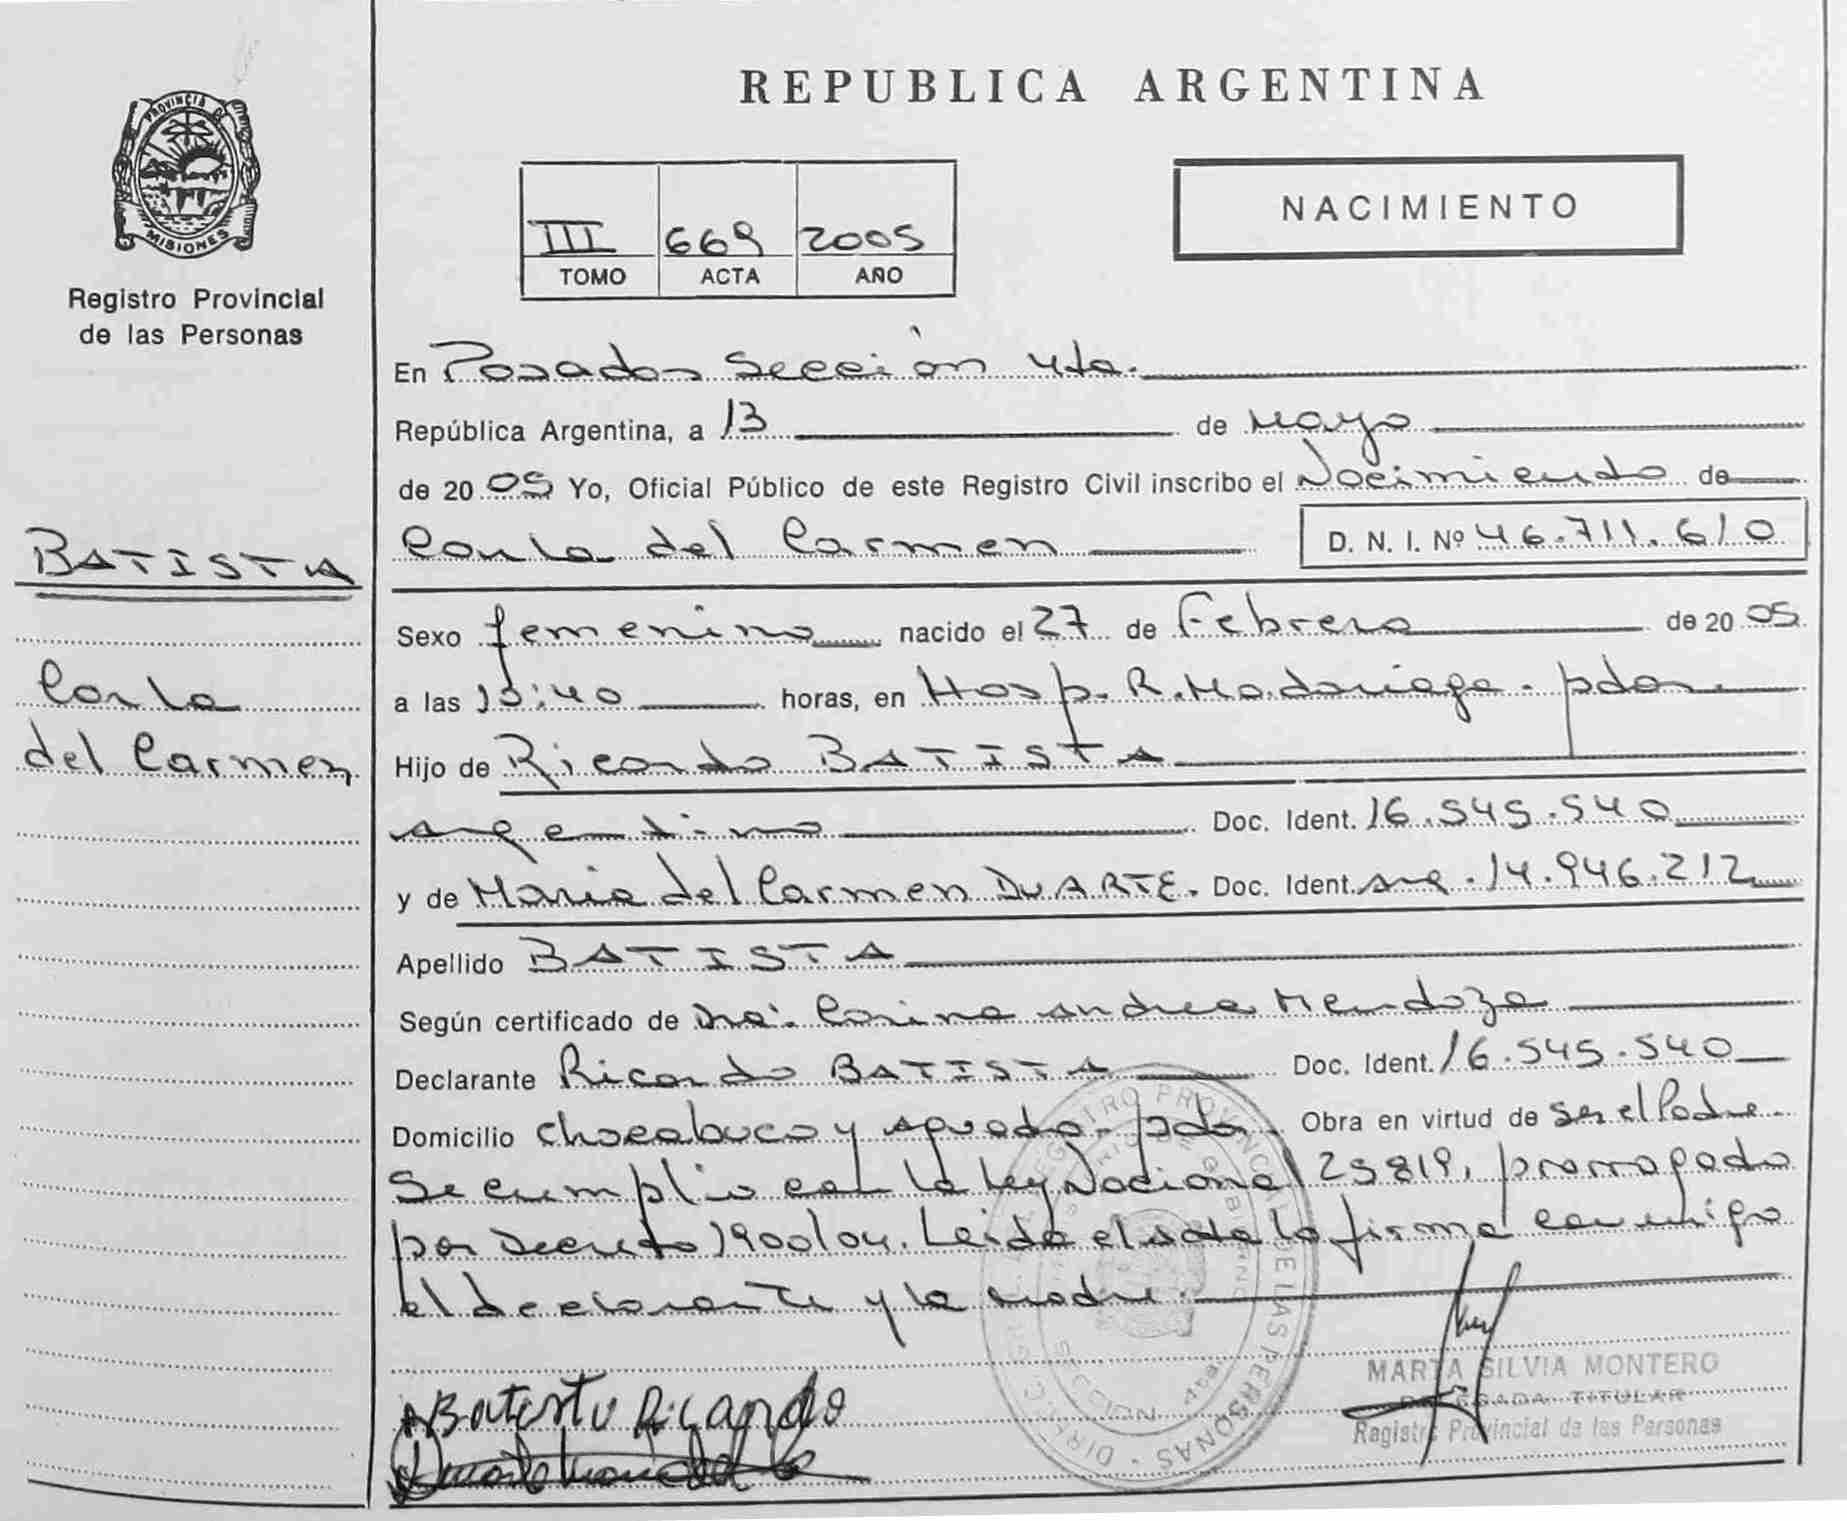 REPUBLICA ARGENTINA
PROVINCIA DE
MISIONES
Registro Provincial
de las Personas
NACIMIENTO
III 669 2005
TOMO ACTA AÑO
En Posadas Sección 4ta.
República Argentina, a 13 de Mayo
de 2005 Yo, Oficial Público de este Registro Civil inscribo el Nacimiento de
Carla del Carmen D. N. I. Nº 46.711.610
BATISTA
Carla
del Carmen
Sexo femenino nacido el 27 de Febrero de 2005
a las 13:40 horas, en Hosp. R. Madariaga - pdas.
Hijo de Ricardo BATISTA
argentino Doc. Ident. 16.545.540
y de María del Carmen DUARTE. Doc. Ident. arg. 14.946.212
Apellido BATISTA
Según certificado de Dra. Corina Andrea Mendoza
Declarante Ricardo BATISTA Doc. Ident. 16.545.540
Domicilio Chacabuco y aguado - pdas. Obra en virtud de ser el Padre.
Se cumplio con la Ley Nacional 25819, prorrogado
por Decreto 1900/04. Leída el acta la firma conmigo
el declarante y la madre.
MARTA SILVIA MONTERO
DELEGADA TITULAR
Registro Provincial de las Personas
Batista Ricardo